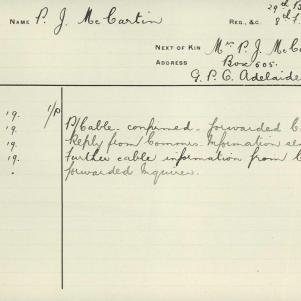 29th B
NAME P. J. McCartin REG., &C. 8th
NEXT OF KIN Mrs P. J. McCa
ADDRESS Box 505.
G. P. O. Adelaide
19. 1/P
19. P/Cable confirmed. forwarded
19. Reply from Commrs. Information sen
19. Further cable information from
forwarded Inquirer.